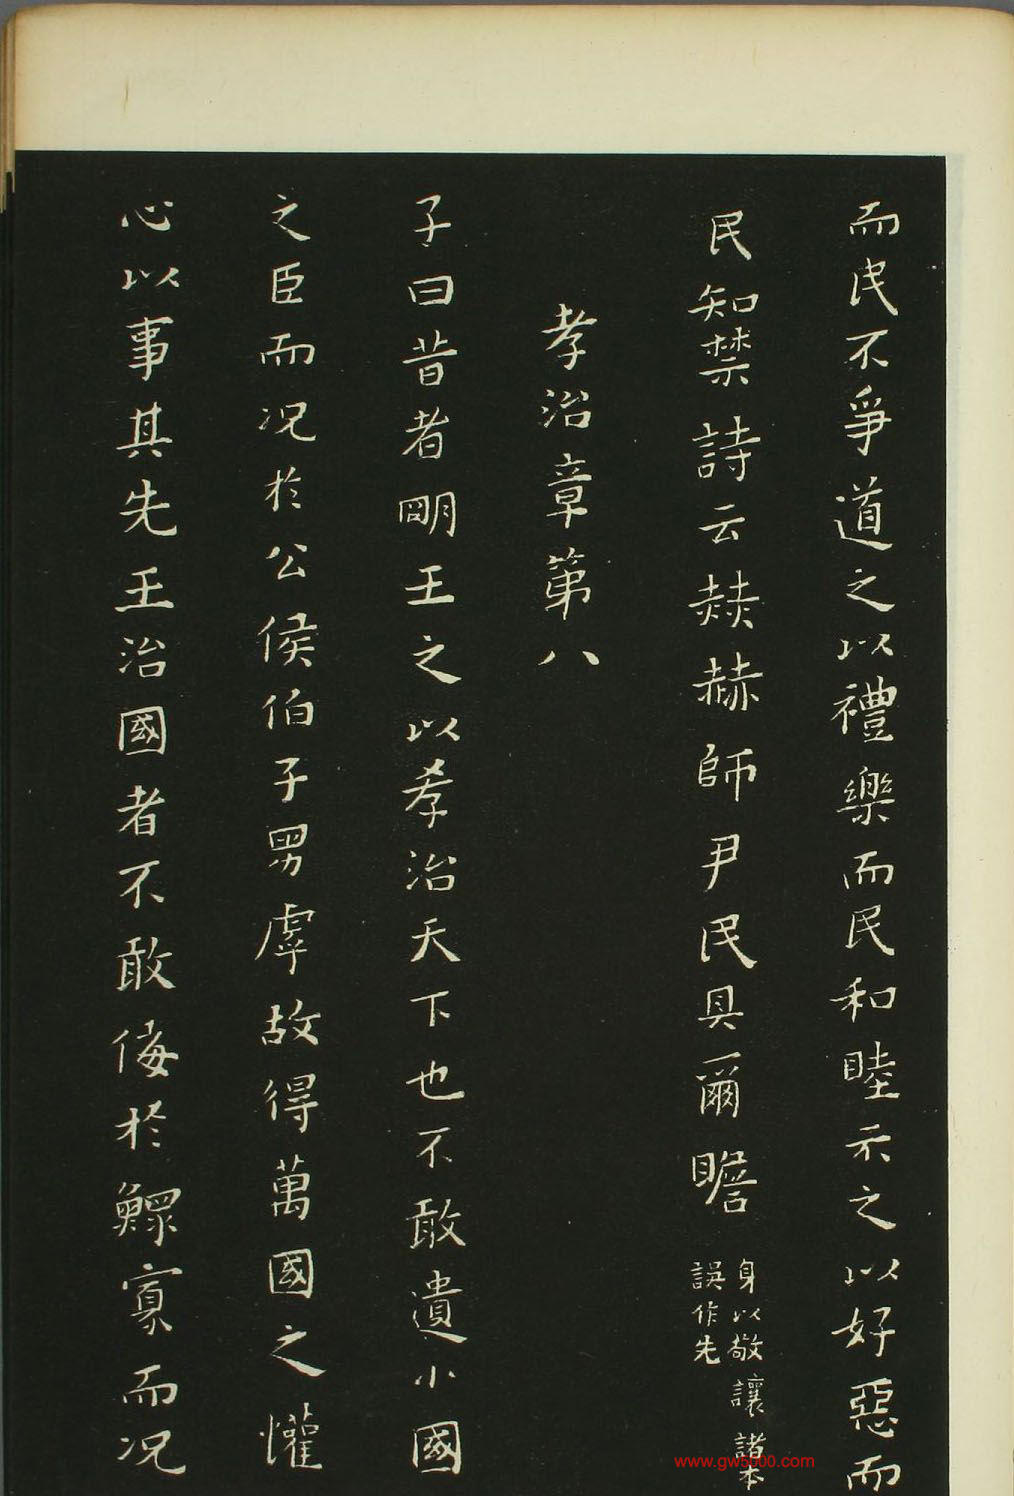 而民不爭道之以禮樂而民和睦示之以好惡而
民知禁詩云赫赫師尹民具爾瞻
身以敬讓諸本
誤作先
孝治章第八
子曰昔者明王之以孝治天下也不敢遺小國
之臣而況於公侯伯子男虖故得萬國之懽
心以事其先王治國者不敢侮於鰥寡而況
www.gw5000.com